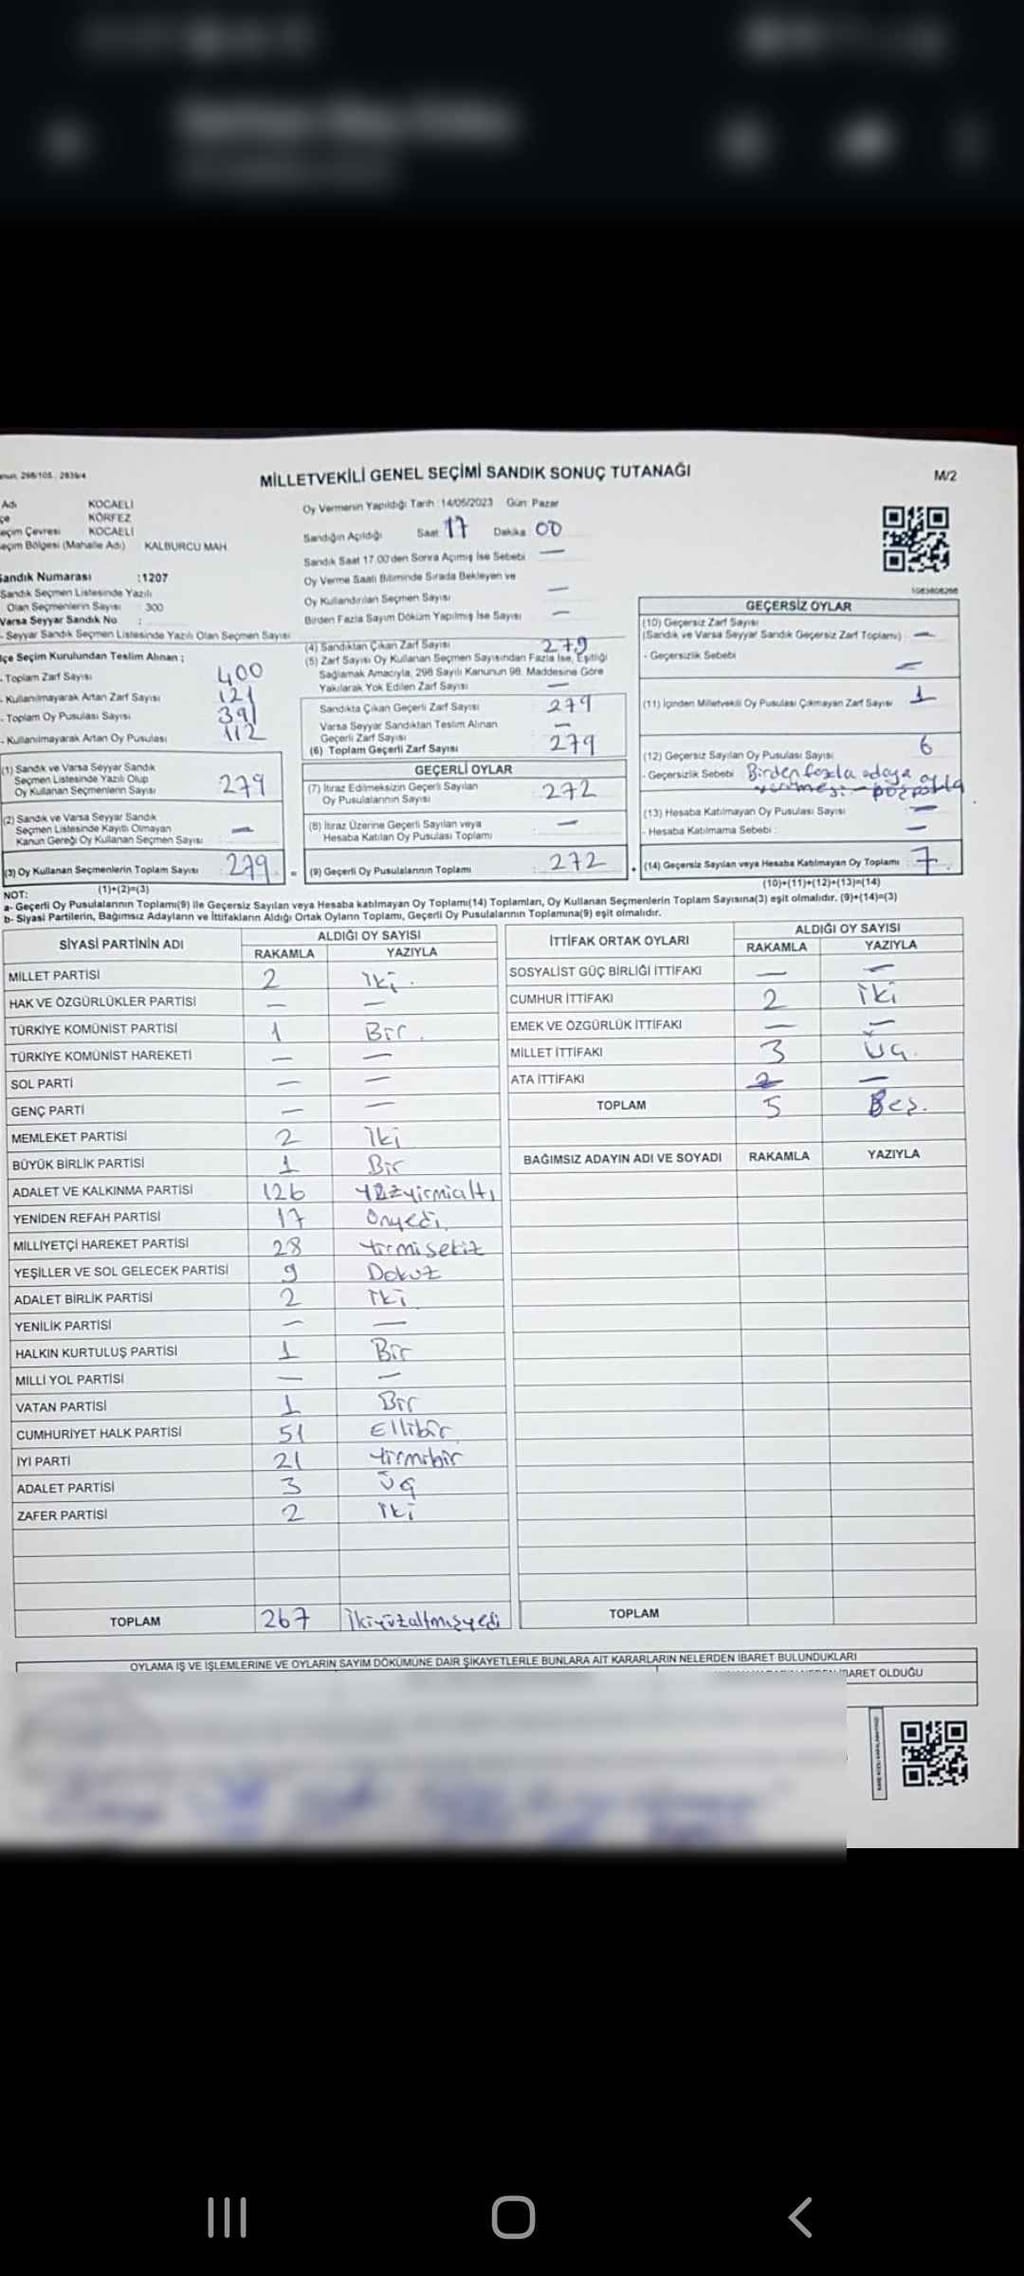 MİLLETVEKİLİ GENEL SEÇİMİ SANDIK SONUÇ TUTANAĞI
M/2
Adı KOCAELİ
çe KÖRFEZ
eçim Çevresi KOCAELİ
eçim Bölgesi (Mahalle Adı) KALBURCU MAH
Sandık Numarası :1207
Sandık Seçmen Listesinde Yazılı
Olan Seçmenlerin Sayısı 300
Varsa Seyyar Sandık No :
- Seyyar Sandık Seçmen Listesinde Yazılı Olan Seçmen Sayısı
Oy Vermenin Yapıldığı Tarih :14/05/2023 Gün: Pazar
Sandığın Açıldığı Saat 17 Dakika 00
Sandık Saat 17.00'den Sonra Açımış İse Sebebi —
Oy Verme Saati Bitiminde Sırada Bekleyen ve
Oy Kullandırılan Seçmen Sayısı —
Birden Fazla Sayım Döküm Yapılmış İse Sayısı —
lçe Seçim Kurulundan Teslim Alınan ;
- Toplam Zarf Sayısı 400
- Kullanılmayarak Artan Zarf Sayısı 121
- Toplam Oy Pusulası Sayısı 391
- Kullanılmayarak Artan Oy Pusulası 112
(1) Sandık ve Varsa Seyyar Sandık
Seçmen Listesinde Yazılı Olup
Oy Kullanan Seçmenlerin Sayısı 279
(2) Sandık ve Varsa Seyyar Sandık
Seçmen Listesinde Kayıtlı Olmayan
Kanun Gereği Oy Kullanan Seçmen Sayısı —
(3) Oy Kullanan Seçmenlerin Toplam Sayısı 279 =
(1)+(2)=(3)
(4) Sandıktan Çıkan Zarf Sayısı 279
(5) Zarf Sayısı Oy Kullanan Seçmen Sayısından Fazla İse, Eşitliği
Sağlamak Amacıyla, 298 Sayılı Kanunun 98. Maddesine Göre
Yakılarak Yok Edilen Zarf Sayısı —
Sandıkta Çıkan Geçerli Zarf Sayısı 279
Varsa Seyyar Sandıktan Teslim Alınan
Geçerli Zarf Sayısı —
(6) Toplam Geçerli Zarf Sayısı 279
GEÇERLİ OYLAR
(7) İtiraz Edilmeksizin Geçerli Sayılan
Oy Pusulalarının Sayısı 272
(8) İtiraz Üzerine Geçerli Sayılan veya
Hesaba Katılan Oy Pusulası Toplamı —
(9) Geçerli Oy Pusulalarının Toplamı 272 +
GEÇERSİZ OYLAR
(10) Geçersiz Zarf Sayısı
(Sandık ve Varsa Seyyar Sandık Geçersiz Zarf Toplamı) —
- Geçersizlik Sebebi —
(11) İçinden Milletvekili Oy Pusulası Çıkmayan Zarf Sayısı 1
(12) Geçersiz Sayılan Oy Pusulası Sayısı 6
- Geçersizlik Sebebi Birden fazla adaya oy
verilmesi -
(13) Hesaba Katılmayan Oy Pusulası Sayısı —
- Hesaba Katılmama Sebebi : —
(14) Geçersiz Sayılan veya Hesaba Katılmayan Oy Toplamı 7
(10)+(11)+(12)+(13)=(14)
NOT:
a- Geçerli Oy Pusulalarının Toplamı(9) ile Geçersiz Sayılan veya Hesaba katılmayan Oy Toplamı(14) Toplamları, Oy Kullanan Seçmenlerin Toplam Sayısına(3) eşit olmalıdır. (9)+(14)=(3)
b- Siyasi Partilerin, Bağımsız Adayların ve İttifakların Aldığı Ortak Oyların Toplamı, Geçerli Oy Pusulalarının Toplamına(9) eşit olmalıdır.
SİYASİ PARTİNİN ADI ALDIĞI OY SAYISI
RAKAMLA YAZIYLA
MİLLET PARTİSİ 2 iki.
HAK VE ÖZGÜRLÜKLER PARTİSİ — —
TÜRKİYE KOMÜNİST PARTİSİ 1 Bir.
TÜRKİYE KOMÜNİST HAREKETİ — —
SOL PARTİ — —
GENÇ PARTİ — —
MEMLEKET PARTİSİ 2 iki
BÜYÜK BİRLİK PARTİSİ 1 Bir
ADALET VE KALKINMA PARTİSİ 126 Yüzyirmialtı
YENİDEN REFAH PARTİSİ 17 Onyedi.
MİLLİYETÇİ HAREKET PARTİSİ 28 Yirmisekiz
YEŞİLLER VE SOL GELECEK PARTİSİ 9 Dokuz
ADALET BİRLİK PARTİSİ 2 iki
YENİLİK PARTİSİ — —
HALKIN KURTULUŞ PARTİSİ 1 Bir
MİLLİ YOL PARTİSİ — —
VATAN PARTİSİ 1 Bir
CUMHURİYET HALK PARTİSİ 51 Ellibir
İYİ PARTİ 21 Yirmibir
ADALET PARTİSİ 3 Üç
ZAFER PARTİSİ 2 iki
TOPLAM 267 İkiyüzaltmışyedi
İTTİFAK ORTAK OYLARI ALDIĞI OY SAYISI
RAKAMLA YAZIYLA
SOSYALİST GÜÇ BİRLİĞİ İTTİFAKI — —
CUMHUR İTTİFAKI 2 iki
EMEK VE ÖZGÜRLÜK İTTİFAKI — —
MİLLET İTTİFAKI 3 Üç.
ATA İTTİFAKI —
TOPLAM 5 Beş.
BAĞIMSIZ ADAYIN ADI VE SOYADI RAKAMLA YAZIYLA
TOPLAM
OYLAMA İŞ VE İŞLEMLERİNE VE OYLARIN SAYIM DÖKÜMÜNE DAİR ŞİKAYETLERLE BUNLARA AİT KARARLARIN NELERDEN İBARET BULUNDUKLARI
BARET OLDUĞU